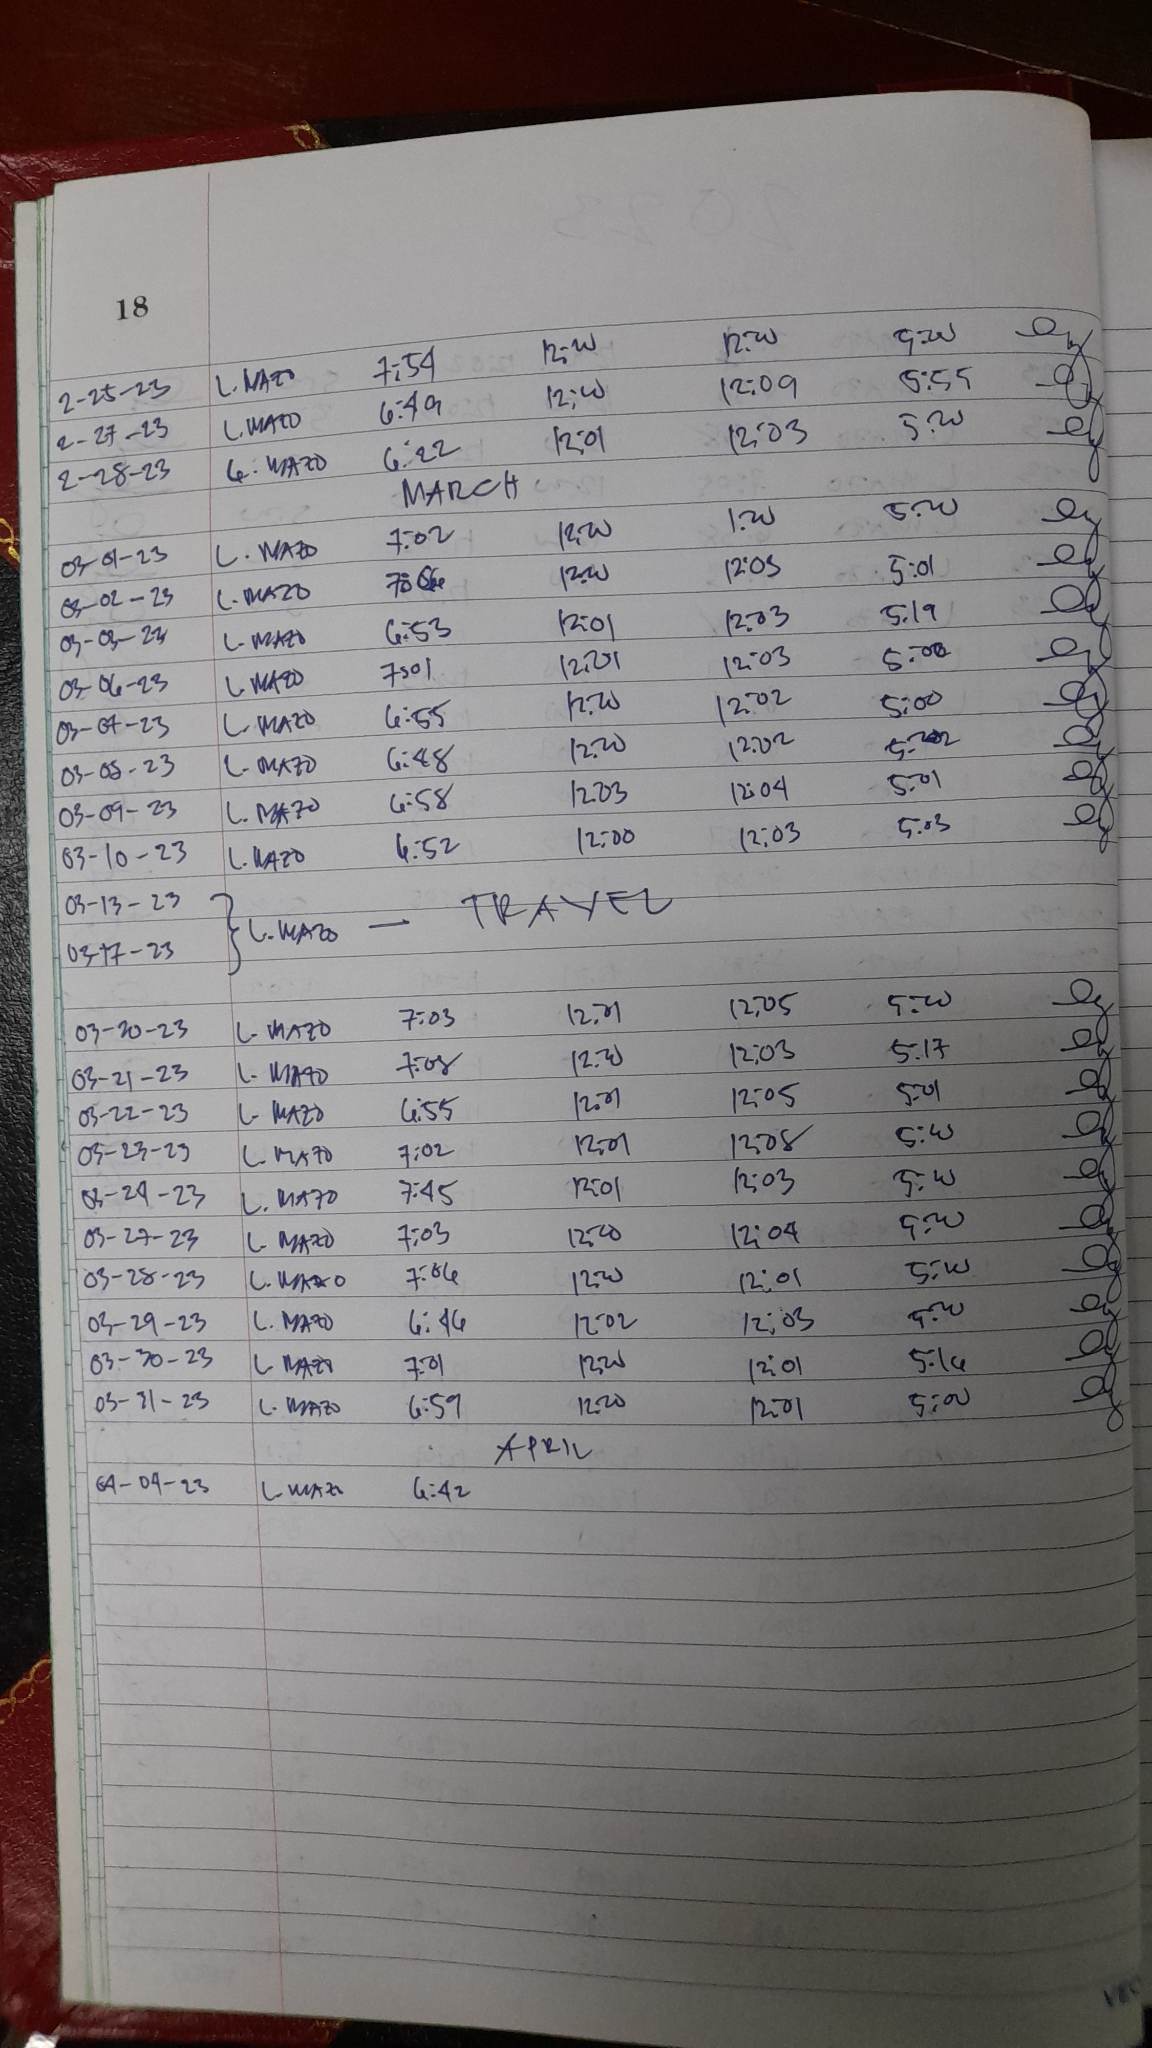 18
2-25-23 L. MAZO 7:54 12:00 12:00 5:00
2-27-23 L. MAZO 6:49 12:00 12:09 5:55
2-28-23 L. MAZO 6:22 12:01 12:03 5:00
MARCH
03-01-23 L. MAZO 7:02 12:00 1:00 5:00
03-02-23 L. MAZO 7:06 12:00 12:03 5:01
03-03-23 L. MAZO 6:53 12:01 12:03 5:19
03-06-23 L. MAZO 7:01 12:01 12:03 5:00
03-07-23 L. MAZO 6:55 12:00 12:02 5:00
03-08-23 L. MAZO 6:48 12:00 12:02 5:02
03-09-23 L. MAZO 6:58 12:03 12:04 5:01
03-10-23 L. MAZO 6:52 12:00 12:03 5:03
03-13-23
L. MAZO — TRAVEL
03-17-23
03-20-23 L. MAZO 7:03 12:01 12:05 5:00
03-21-23 L. MAZO 7:08 12:00 12:03 5:17
03-22-23 L. MAZO 6:55 12:01 12:05 5:01
03-23-23 L. MAZO 7:02 12:01 12:08 5:00
03-24-23 L. MAZO 7:45 12:01 12:03 5:00
03-27-23 L. MAZO 7:03 12:00 12:04 5:00
03-28-23 L. MAZO 7:06 12:00 12:01 5:00
03-29-23 L. MAZO 6:46 12:02 12:03 5:00
03-30-23 L. MAZO 7:01 12:00 12:01 5:16
03-31-23 L. MAZO 6:59 12:00 12:01 5:00
APRIL
04-04-23 L. MAZO 6:42